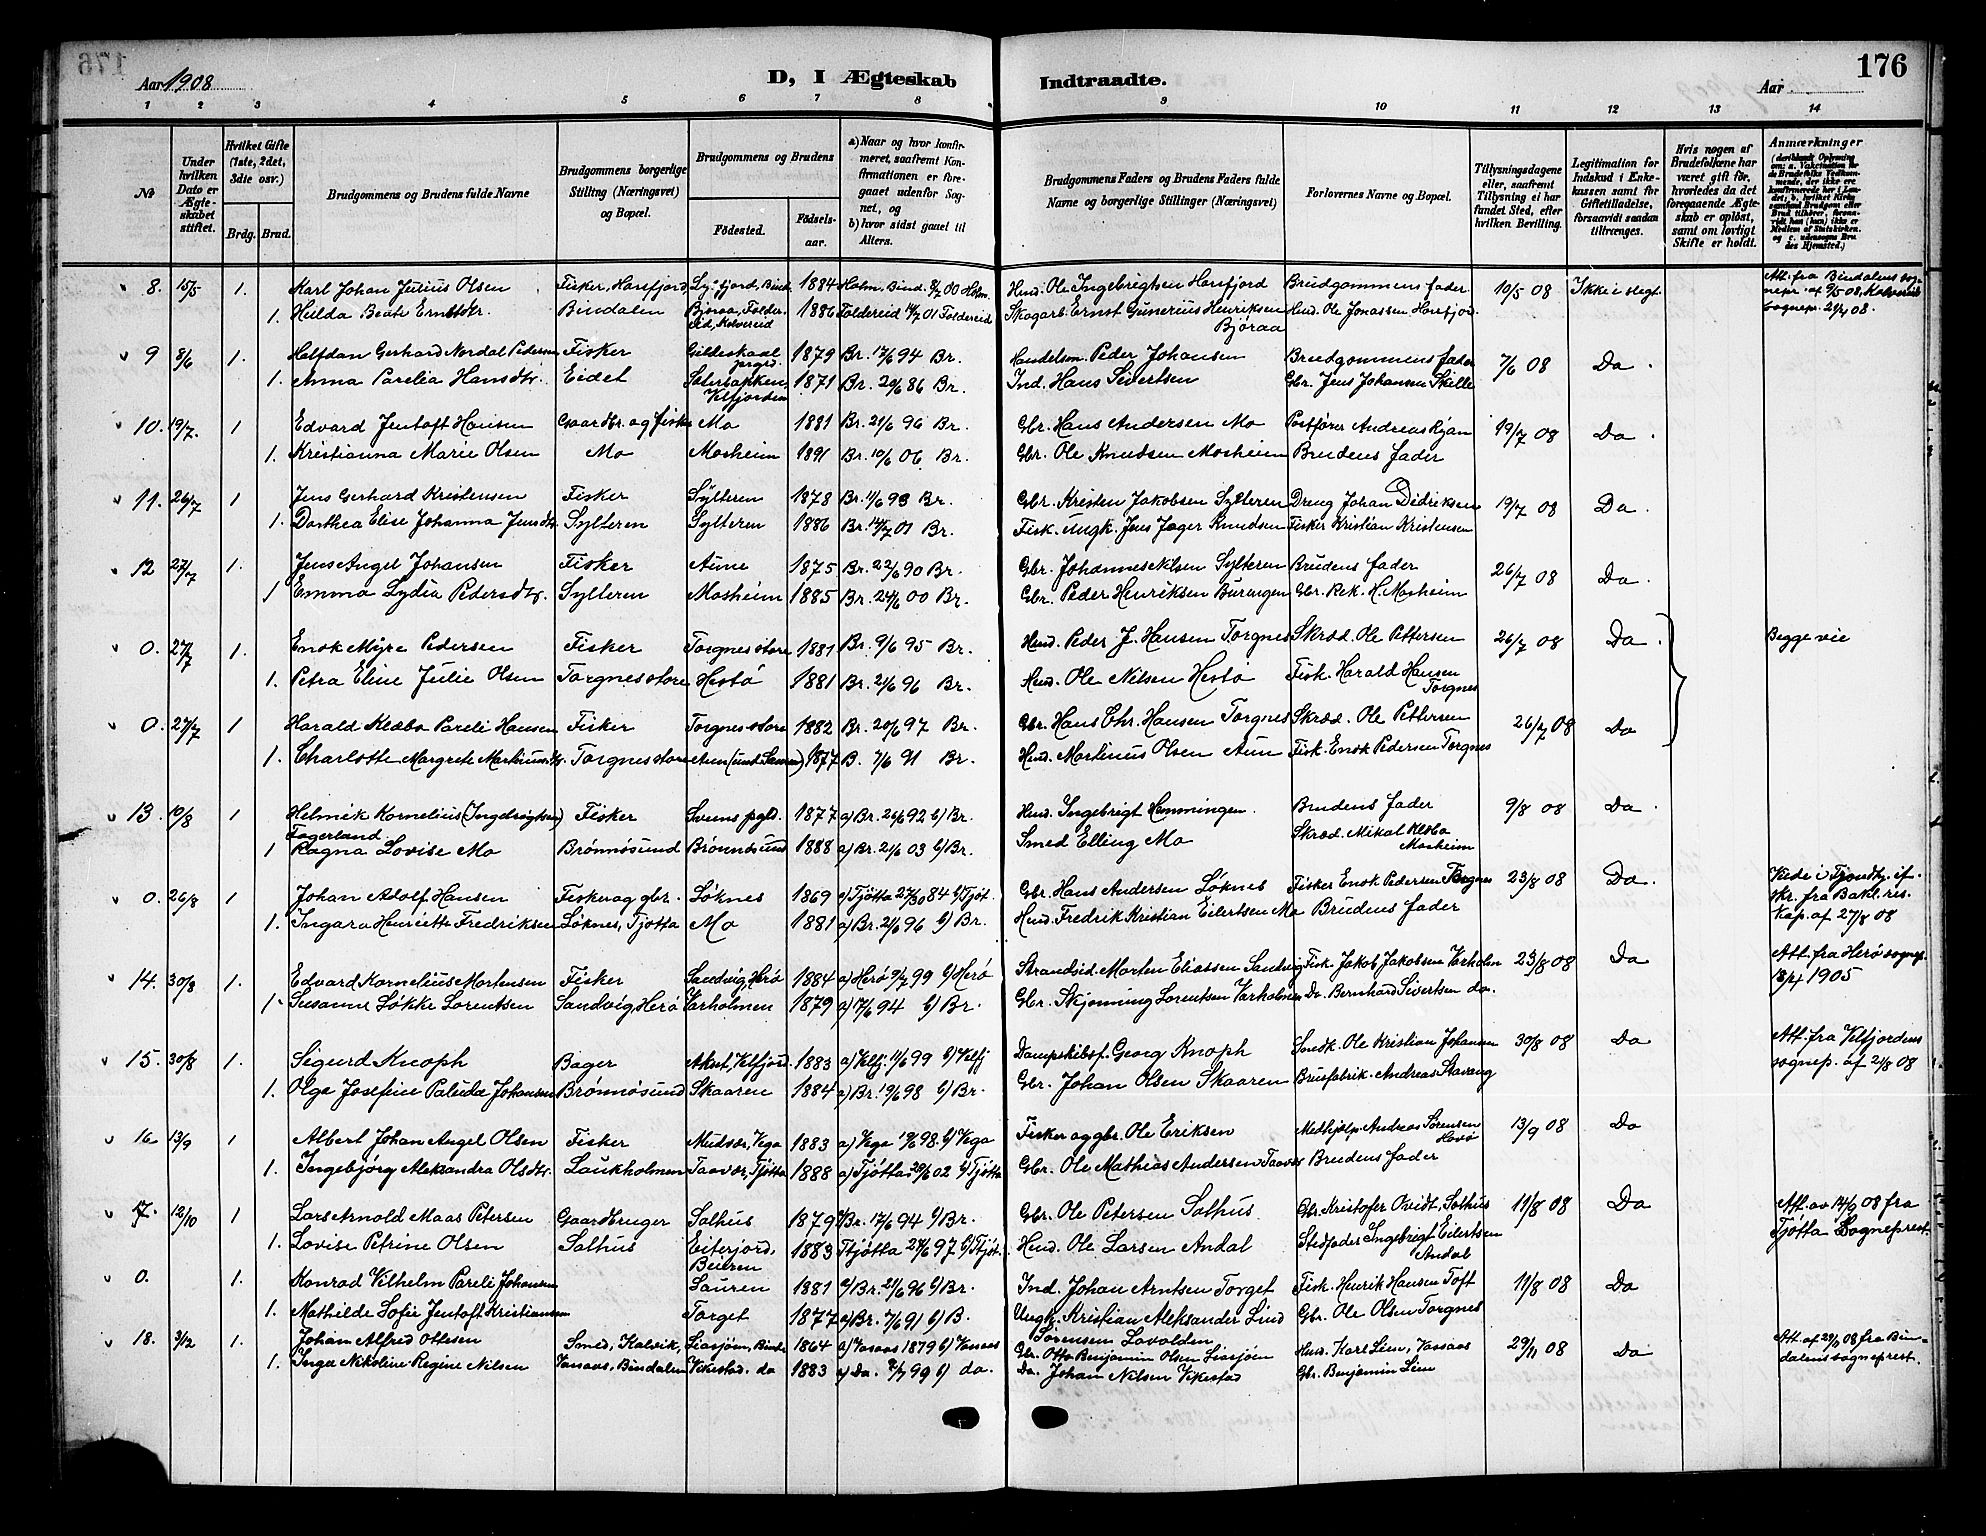 176
Aar 1908
D, I Ægteskab Indtraadte.
Aar
176
1 2 3 4 5 6 7 8 9 10 11 12 13 14
№
Under hvilken Dato er Ægteskabet stiftet.
Hvilket Gifte (1ste, 2det, 3die osv.)
Brdg. Brud.
Brudgommens og Brudens fulde Navne
Brudgommens borgerlige Stilling (Næringsvei) og Bopæl.
Brudgommens og Brudens
Fødested. Fødselsaar.
a) Naar og hvor konfirmeret, saafremt Konfirmationen er foregaaet udenfor Sognet, og
b) hvor sidst gaaet til Alters.
Brudgommens Faders og Brudens Faders fulde Navne og borgerlige Stillinger (Næringsvei)
Forlovernes Navne og Bopæl.
Tillysningsdagene eller, saafremt Tillysning ei har fundet Sted, efter hvilken Bevilling.
Legitimation for Indskud i Enkekassen samt for Giftetilladelse, forsaavidt saadan tiltrænges.
Hvis nogen af Brudefolkene har været gift før, hvorledes da det foregaaende Ægteskab er opløst, samt om lovligt Skifte er holdt.
Anmærkninger
8. 15/5 1. Karl Johan Julius Olsen Fisker, Horsfjord 1884 Holm, Bind. 8/7 00 Holm. Husm. Ole Ingebrigtsen Horsfjord Brudgommens fader 10/5 08 Ikke i slegt. Att. fra Bindalens sognepr. af 9/5 08, Kolvereid sognepr. 21/4 08.
1. Hilda Beate Ernstdtr. Bindalen Bjøraa, Foldereid, Kolvereid 1886 Foldereid 14/7 01 Foldereid Skogarb. Ernst Gunerius Henriksen Bjøraa Husm. Ole Jonassen Horsfjord
9 8/6 1. Halfdan Gerhard Nordal Pedersen Fisker Gildeskaal prgd. 1879 Br. 17/6 94 Br. Handelsm. Peder Johansen Brudgommens fader 7/6 08 Do
1. Anna Parelia Hansdtr. Eidet Velfjorden 1871 Br. 20/6 86 Br. Ind. Hans Sivertsen Gbr. Jens Johansen Skille
10. 19/7. 1 Edvard Jentoft Hansen Gaardbr. og fisker Mo 1881 Br. 21/6 96 Br. Gbr. Hans Andersen Mo Postfører Andreas Ryan 19/7 08 Do
1. Kristianna Marie Olsen Mo Mosheim 1891 Br. 10/6 06 Br. Gbr. Ole Knudsen Mosheim Brudens fader
11. 26/7 1 Jens Gerhard Kristensen Fisker Sylteren 1878 Br. 11/6 93 Br. Gbr. Kristen Jakobsen Sylteren Dreng Johan Didriksen 19/7 08 Do.
1. Dorthea Elise Johanna Jensdtr. Sylteren Sylteren 1886 Br. 14/7 01 Br. Fisk. ungk. Jens Jæger Knudsen Fisker Kristian Kristensen
12 27/7 1. Jens Angel Johansen Fisker Aune 1875 Br. 22/6 90 Br. Gbr. Johannes Nilsen Sylteren Brudens fader 26/7 08 Do.
1 Emma Lydia Pedersdtr. Sylteren Mosheim 1885 Br. 24/6 00 Br. Gbr. Peder Henriksen Burangen Gbr. Rek. H. Mosheim
0. 27/7 1. Enok Myre Pedersen Fisker Torgnes store 1881 Br. 9/6 95 Br. Husm. Peder J. Hansen Torgnes Skræd. Ole Pettersen 26/7 08 Do. Begge vie
1. Petra Eline Julie Olsen Torgnes store Hestø 1881 Br. 21/6 96 Br. Husm. Ole Nilsen Hestø Fisk. Harald Hansen Torgnes
0. 27/7 1 Harald Klæbo Pareli Hansen Fisker Torgnes store 1882 Br. 20/6 97 Br. Gbr. Hans Chr. Hansen Torgnes Skræd. Ole Pettersen 26/7 08 Do
1. Charlotte Margrete Martinusdtr. Torgnes store 1877 B. 7/6 91 Br. Husm. Martinus Olsen Aun Fisk. Enok Pedersen Torgnes
13. 10/8 1 Helmik Kornelius (Ingebrigtsen) Fagerland Fisker pgld. 1877 a) Br. 26/6 92 b) Br. Husm. Ingebrigt Hemmingsen Brudens fader 9/8 08 Do
1 Ragna Lovise Mo Brønnøsund Brønnøsund 1888 a) Br. 21/6 03 b) Br. Smed Elling Mo Skræd. Mikal Klæbo Mosheim
0. 26/8 1 Johan Adolf Hansen Fisker og gbr. Løknes 1869 a) Tjøtta 84 b) Tjøt. Gbr. Hans Andersen Løknes Fisker Enok Pedersen Torgnes 23/8 08 Do.
1. Ingara Henriette Fredriksen Løknes, Tjøtta Mo 1881 a) Br. 21/6 96 b) Br. Husm. Fredrik Kristian Eilertsen Mo Brudens fader
14. 30/8 1. Edvard Kornelius Mortensen Fisker Sandvig, Herø 1884 a) Herø 9/7 99 b) Herø Strandsid. Morten Eliassen Sandvig Fisk. Jakob Jakobsen Varholm 23/8 08 Do Att. fra Herø sognep. 1905
1. Susanne Løkke Lorentsen Sandvig, Herø Varholmen 1879 a) 17/6 94 b) Br. Gbr. Skjønning Lorentsen Varholmen Do. Bernhard Sivertsen do.
15. 30/8 1. Sigurd Knoph Bager Velfjord 1883 a) Velfj. 11/6 99 b) Velfj Dampskibsf. Georg Knoph Snedk. Ole Kristian Johansen 30/8 08 Do Att. fra Velfjordens sognep. af 21/8 08
1. Olga Josefine Paluda Johansen Brønnøsund Skaaren 1884 a) Br. 19/6 98 b) Br. Gbr. Johan Olsen Skaaren Brusfabrik. Andreas Stavang
16. 13/9 1 Albert Johan Angel Olsen Fisker Mudvær, Vega 1883 a) Vega 19/6 98 b) Vega Fisker og gbr. Ole Eriksen Medhjelp. Andreas Sørensen 13/9 08 Do
1. Ingebjørg Aleksandra Olsdtr. Laukholmen Taavær, Tjøtta 1888 a) Tjøtta 29/6 02 b) Tjøtta Gbr. Ole Mathias Andersen Taavær Brudens fader
17. 12/10 1 Lars Arnold Maas Petersen Gaardbruger Salhus 1879 Br. 17/6 94 b) Br. Gbr. Ole Petersen Salhus Gbr. Kristofer Qvidt, Salhus 11/8 08 Do Att. av 14/9 08 fra Tjøtta Sogneprest
1. Lovise Petrine Olsen Salhus Eiterjord, Beieren 1883 Tjøtta 97 b) Tjøt. Husm. Ole Larsen Andal Stedfader Ingebrigt Eilertsen Andal
0. 1. Konrad Vilhelm Pareli Johansen Sauren 1881 a) Br. 21/6 96 b) Br. Ind. Johan Arntsen Torget Fisk. Henrik Hansen Toft 11/8 08 Do
1. Mathilde Sofie Jentoft Kristiansen Torget 1877 a) Br. 7/6 91 b) B. Ungk. Kristian Aleksander Lind Sørensen Lovolden Gbr. Ole Olsen Torgnes
18. 3/2 1. Johan Alfred Ottesen Smed, Kalvik, Siasjøen, Bindal 1864 a) Vasaas 1879 b) Vassaas Gbr. Otto Benjamin Olsen Siasjøen Husm. Karl Lien, Vassaas 29/11 08 Do Att. af 08 fra Bindalens sogneprest.
1. Inga Nikoline Regine Nilsen Vassaas, Bindalen Vikestad, do 1883 a) Do. 99 b) do. Do. Johan Nilsen Vikestad Gbr. Benjamin Lien